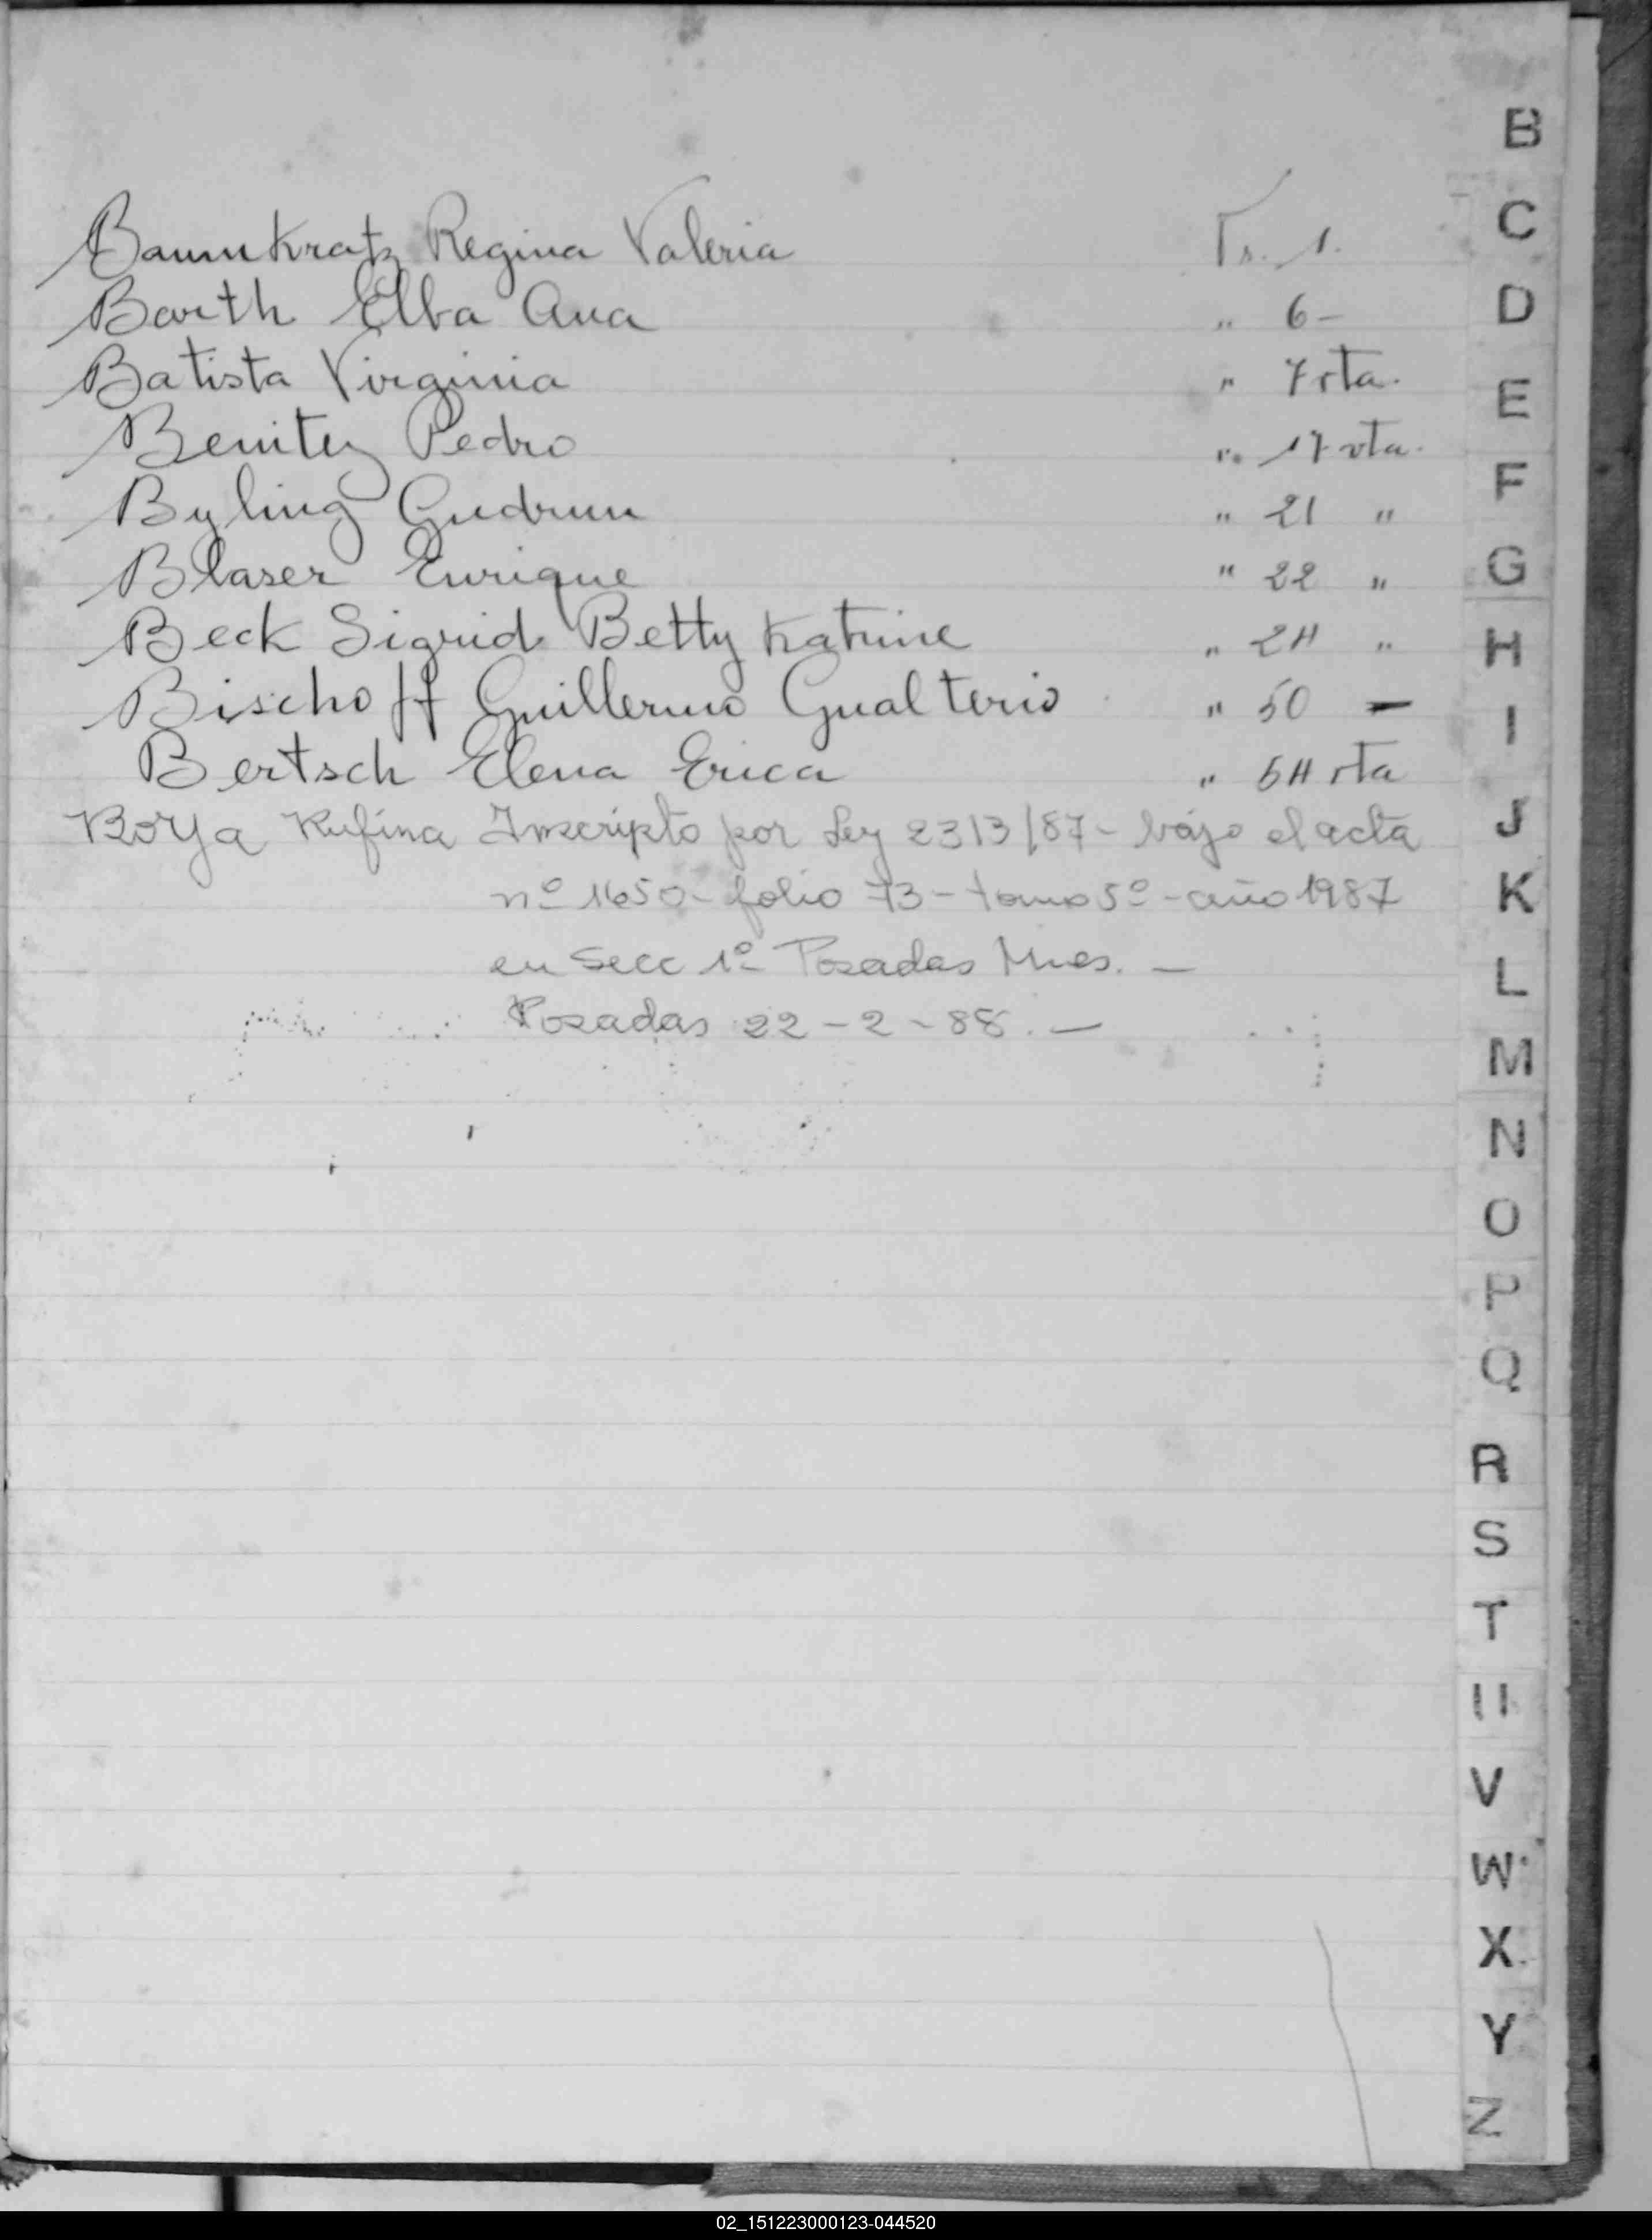 Baumkratz Regina Valeria Fs. 1.
Barth Elba Ana " 6 -
Batista Virginia " 7 vta.
Benitez Pedro " 17 vta.
Byling Gudrun " 21 "
Blaser Enrique " 22 "
Beck Sigrid Betty Katrine " 24 "
Bischoff Guillermo Gualterio " 50 -
Bertsch Elena Erica " 54 vta
Borja Rufina Inscripto por Ley 2313/87 - bajo el acta
nº 1650 - folio 73 - tomo 5º - año 1987
en Secc 1º Posadas Mnes. -
Posadas 22 - 2 - 88. -
B
C
D
E
F
G
H
I
J
K
L
M
N
O
P
Q
R
S
T
U
V
W
X
Y
Z
02_151223000123-044520